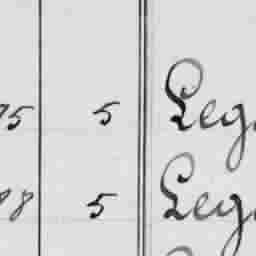 75 5 Leg
98 5 Leg